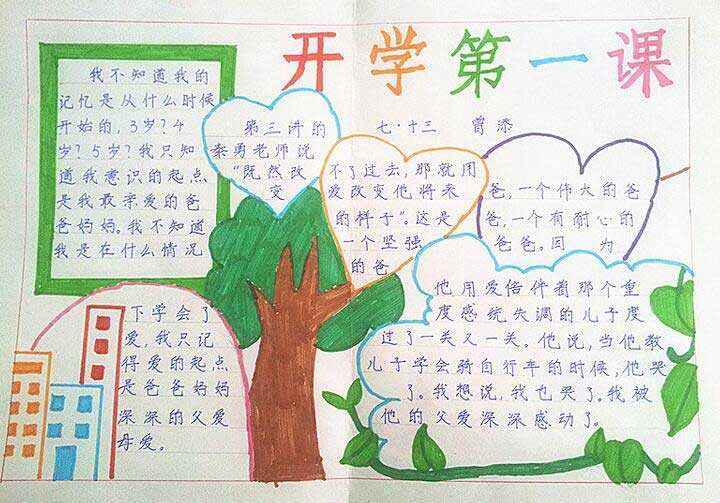 开学第一课
七·十三 曾添
我不知道我的
记忆是从什么时候
开始的，3岁？4
岁？5岁？我只知
道我意识的起点
是我敢亲爱的爸
爸妈妈。我不知道
我是在什么情况
下学会了
爱，我只记
得爱的起点
是爸爸妈妈
深深的父爱
母爱。
第三讲的
秦勇老师说
“既然改
变
不了过去，那就用
爱改变他将来
的样子”。这是
一个坚强
的爸
爸，一个伟大的爸
爸，一个有耐心的
爸爸。因为
他用爱陪伴着那个重
度感统失调的儿子度
过了一关又一关。他说，当他教
儿子学会骑自行车的时候，他哭
了。我想说，我也哭了。我被
他的父爱深深感动了。